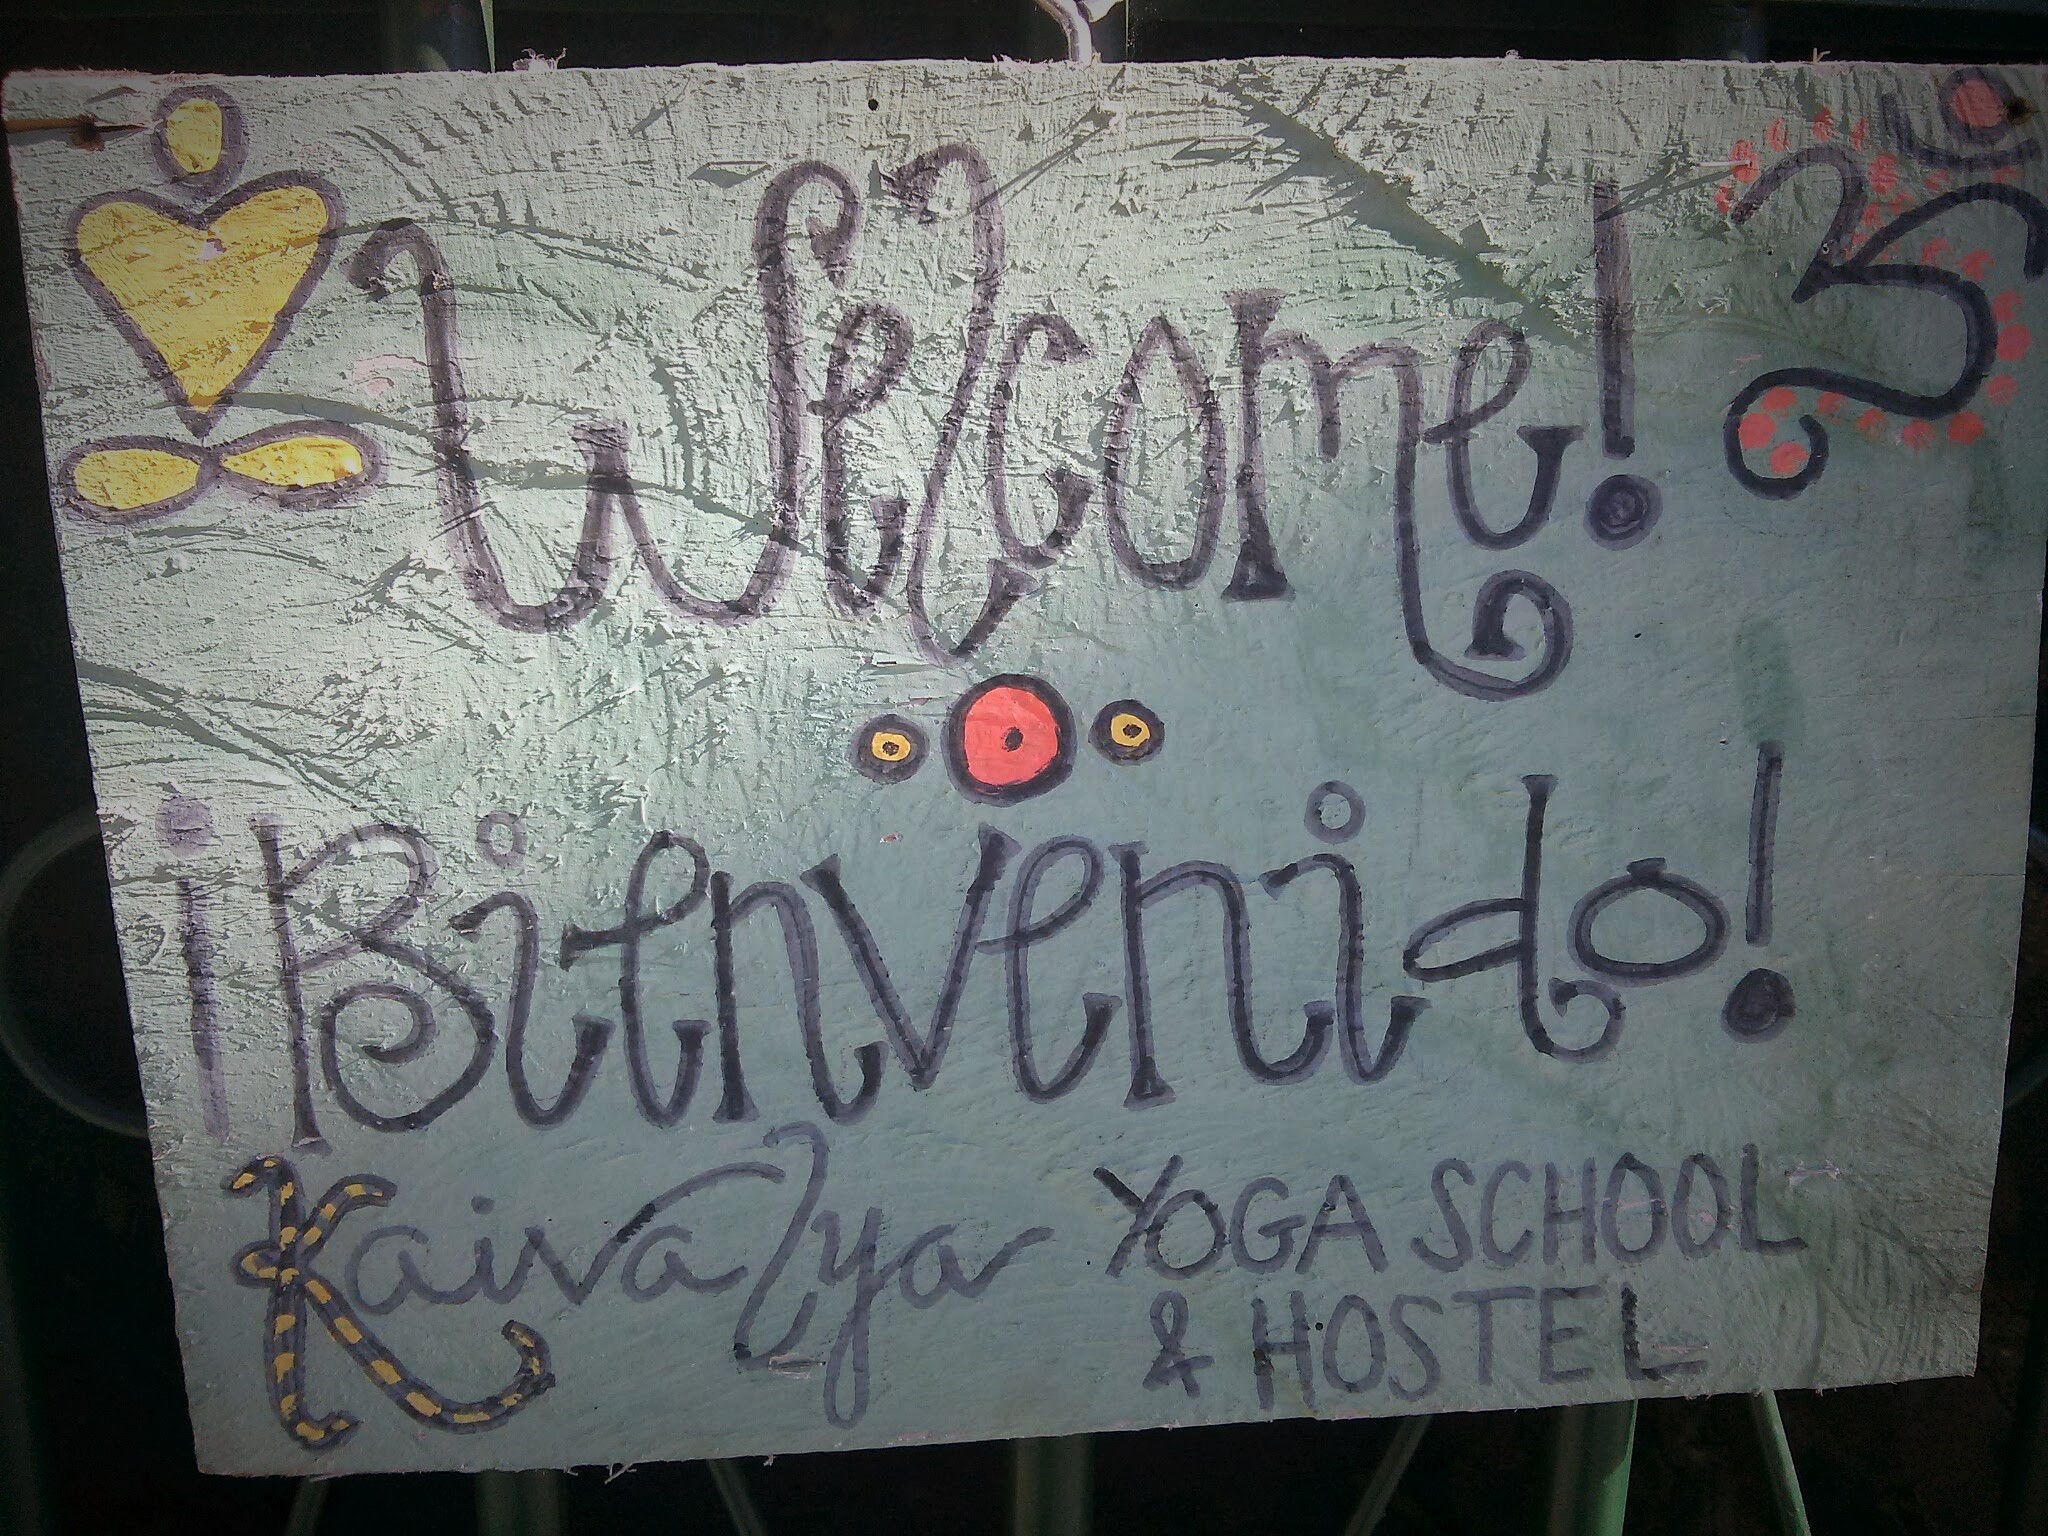 Welcome! ॐ
¡Bienvenido!
Kaivalya YOGA SCHOOL
& HOSTEL